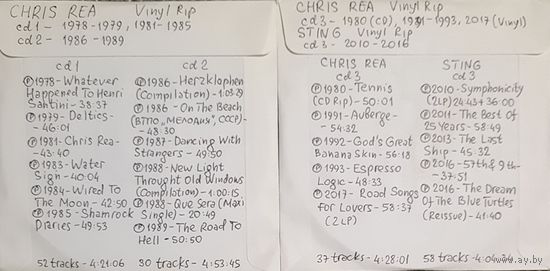 CHRIS REA Vinyl Rip
cd1 - 1978-1979, 1981-1985
cd2 - 1986-1989
cd1
℗ 1978 - Whatever
Happened To Henri
Santini - 38:37
℗ 1979 - Deltics -
- 46:01
℗ 1981 - Chris Rea -
- 43:40
℗ 1983 - Water
Sign - 40:04
℗ 1984 - Wired To
The Moon - 42:50
℗ 1985 - Shamrock
Diaries - 49:53
52 tracks - 4:21:06
cd2
℗ 1986 - Herzklopfen
(Compilation) - 1:03:29
℗ 1986 - On The Beach
(ВТПО "Мелодия", СССР) -
- 48:30
℗ 1987 - Dancing With
Strangers - 49:50
℗ 1988 - New Light
Throught Old Windows
(Compilation) - 1:00:15
℗ 1988 - Que Sera (Maxi
Single) - 20:49
℗ 1989 - The Road To
Hell - 50:50
30 tracks - 4:53:45
CHRIS REA Vinyl Rip
cd3 - 1980 (CD), 1991-1993, 2017 (Vinyl)
STING Vinyl Rip
cd3 - 2010-2016
CHRIS REA
cd3
℗ 1980 - Tennis
(CD Rip) - 50:01
℗ 1991 - Auberge -
- 54:32
℗ 1992 - God's Great
Banana Skin - 56:18
℗ 1993 - Espresso
Logic - 48:33
℗ 2017 - Road Songs
for Lovers - 58:37
(2LP)
37 tracks - 4:28:01
STING
cd3
℗ 2010 - Symphonicity
(2LP) 24:43+36:00
℗ 2011 - The Best Of
25 Years - 58:49
℗ 2013 - The Last
Ship - 45:32
℗ 2016 - 57th & 9th -
- 37:51
℗ 2016 - The Dream
Of The Blue Turtles
(Reissue) - 41:40
58 tracks -
www.ay.by